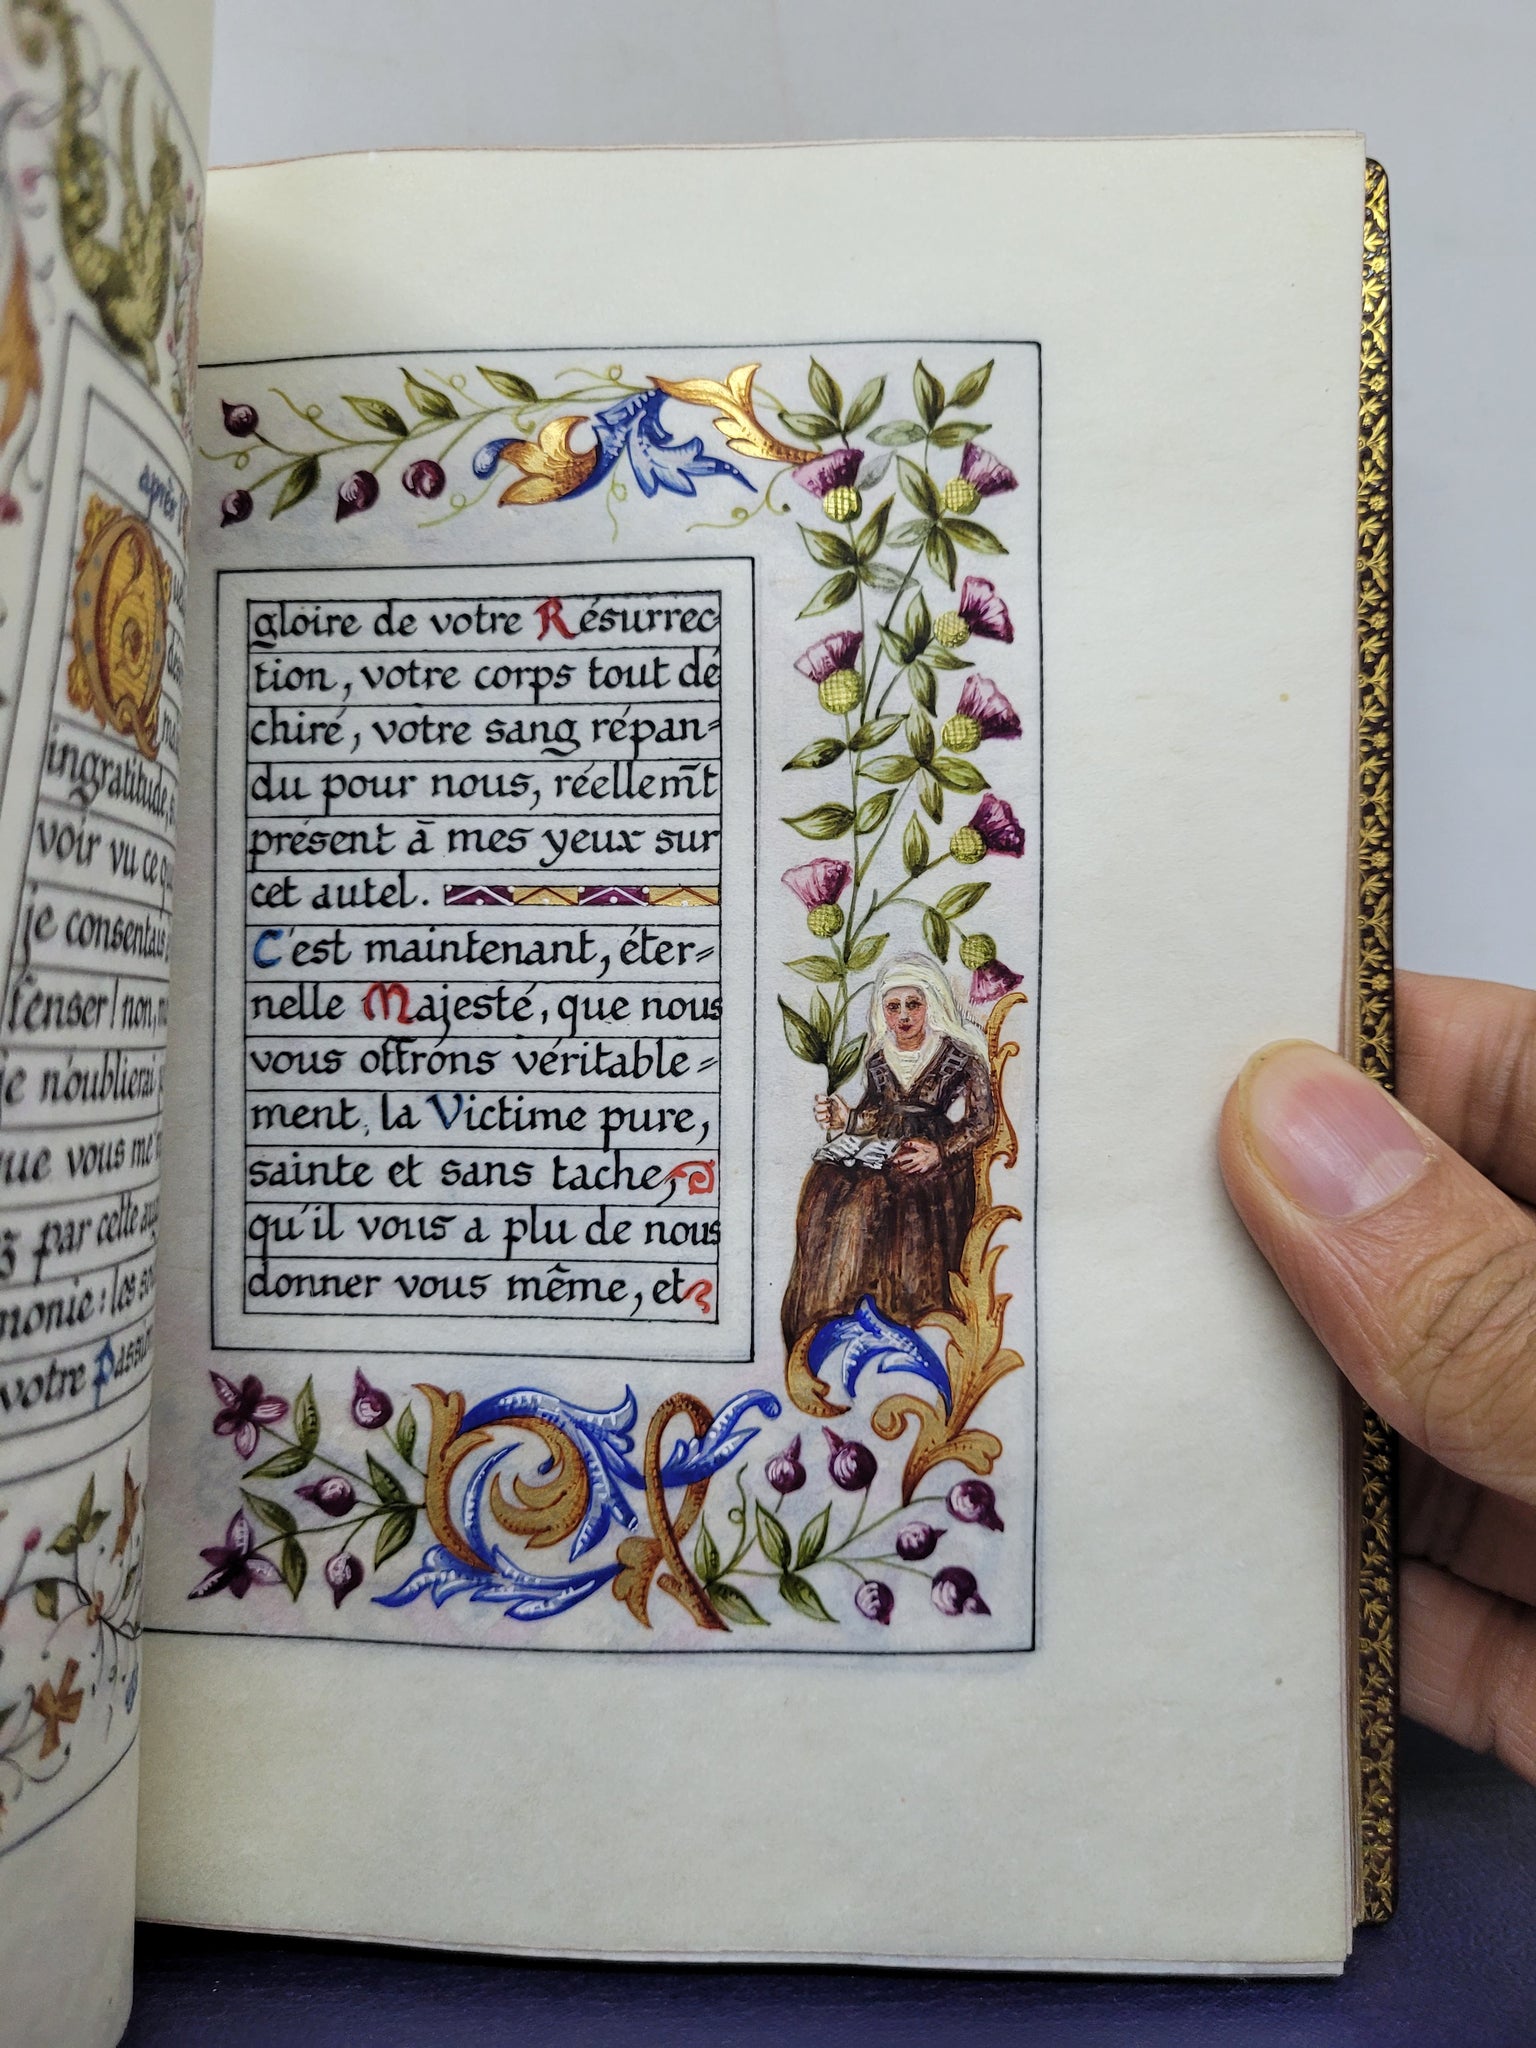 après
ingratitude,
voir vu ce
je consentais
fenser! non,
je n'oublierai
que vous
par cette
monie: les
votre Passion
gloire de votre Résurrec-
tion, votre corps tout dé
chiré, votre sang répan=
du pour nous, réellem̃t
présent ā mes yeux sur
cet autel.
C'est maintenant, éter=
nelle Majesté, que nous
vous offrons véritable=
ment, la Victime pure,
sainte et sans tache,
qu'il vous a plu de nous
donner vous même, et